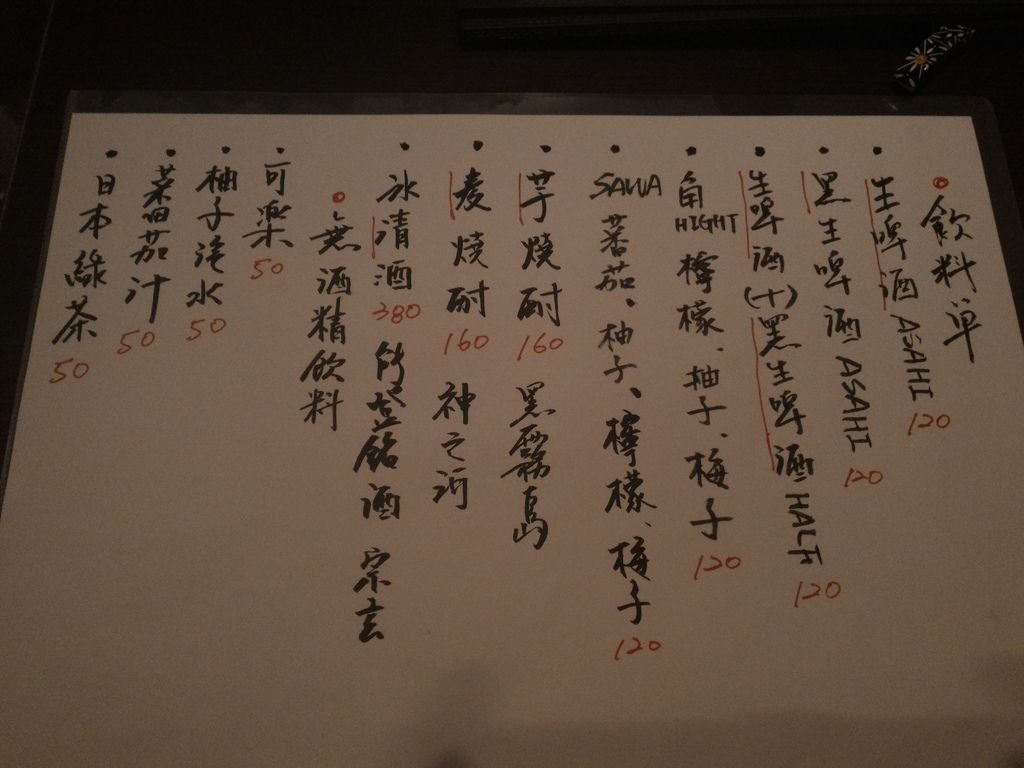 飲料單
生啤酒 ASAHI 120
黑生啤酒 ASAHI 120
生啤酒(十)黑生啤酒 HALF 120
角HIGHT 檸檬、柚子、梅子 120
SAWA 蕃茄、柚子、檸檬、梅子 120
芋燒酎 160 黑霧島
麦燒酎 160 神之河
冰清酒 380 能登銘酒 宗玄
無酒精飲料
可樂 50
柚子泡水 50
蕃茄汁 50
日本綠茶 50